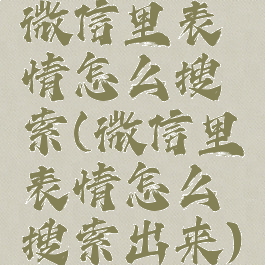 微信里表
情怎么搜
索(微信里
表情怎么
搜索出来)